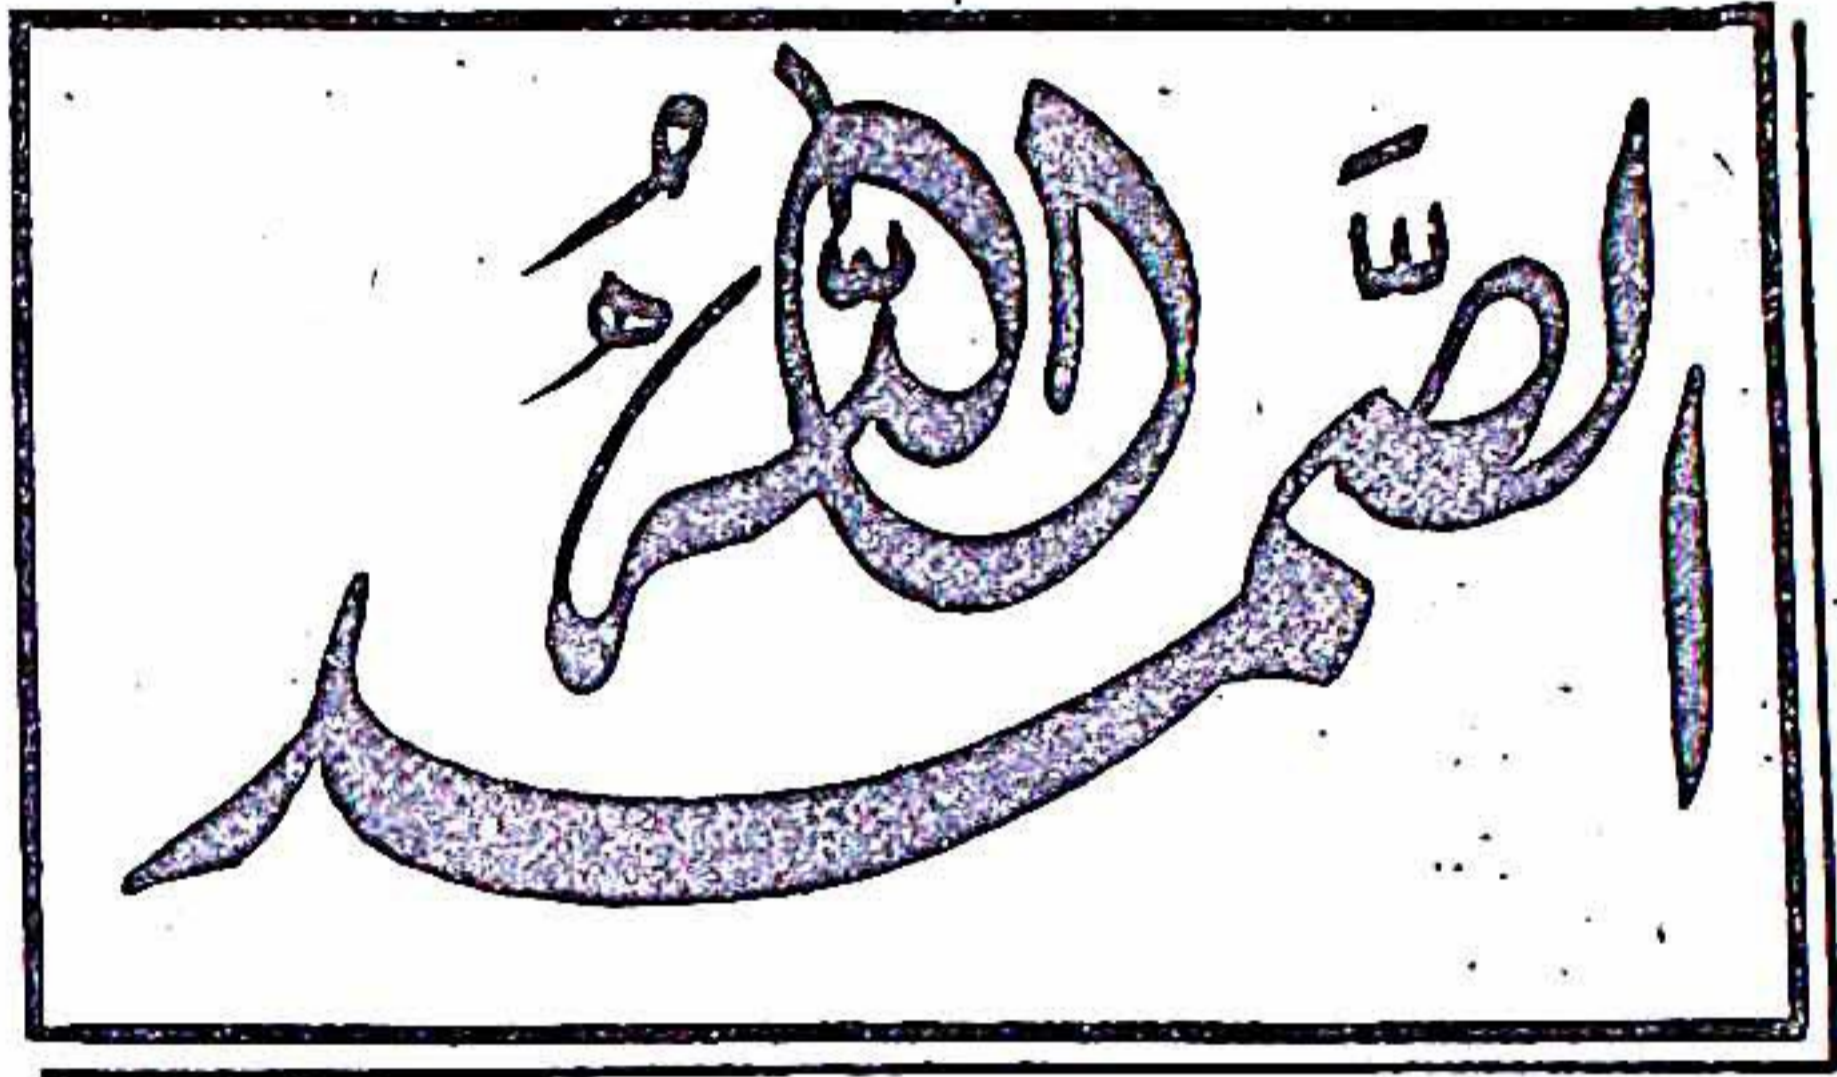 اللهُ الصَّمد